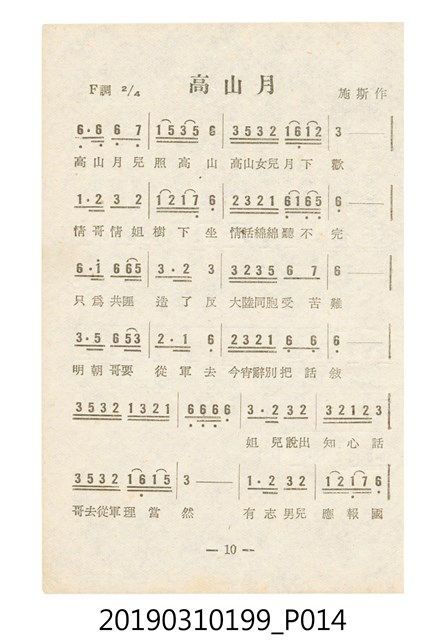 高山月
F調 2/4
施斯作
6·6 6 7 | 1535 6 | 3532 1612 | 3 —
高山月兒照高山 高山女兒月下歡
1·2 3 2 | 1217 6 | 2321 6165 | 6 —
情哥情姐樹下坐 情話綿綿聽不完
6·1 665 | 3·2 3 | 3235 6 7 | 6 —
只爲共匪造了反 大陸同胞受苦難
3·5 653 | 2·1 6 | 2321 6 6 | 6 —
明朝哥要從軍去 今宵辭別把話敘
3532 1321 | 6666 | 3·2 32 | 32123
姐兒說出知心話
3532 1615 | 3 — | 1·2 32 | 12176
哥去從軍理當然 有志男兒應報國
— 10 —
20190310199_P014